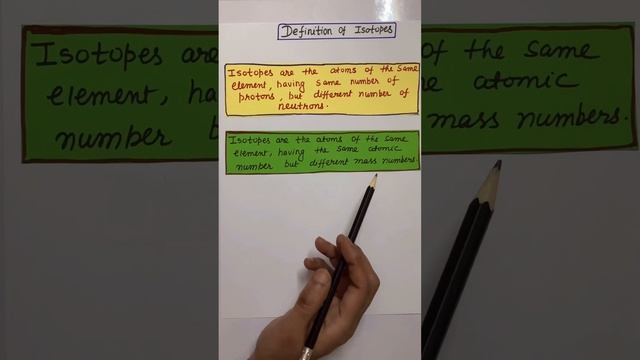 Definition of Isotopes
Isotopes are the atoms of the same
element, having same number of
protons, but different number of
neutrons.
Isotopes are the atoms of the same
element, having the same atomic
number but different mass numbers.
Isotopes are
element, ha
number b
of the same
e atomic
mass numbers.